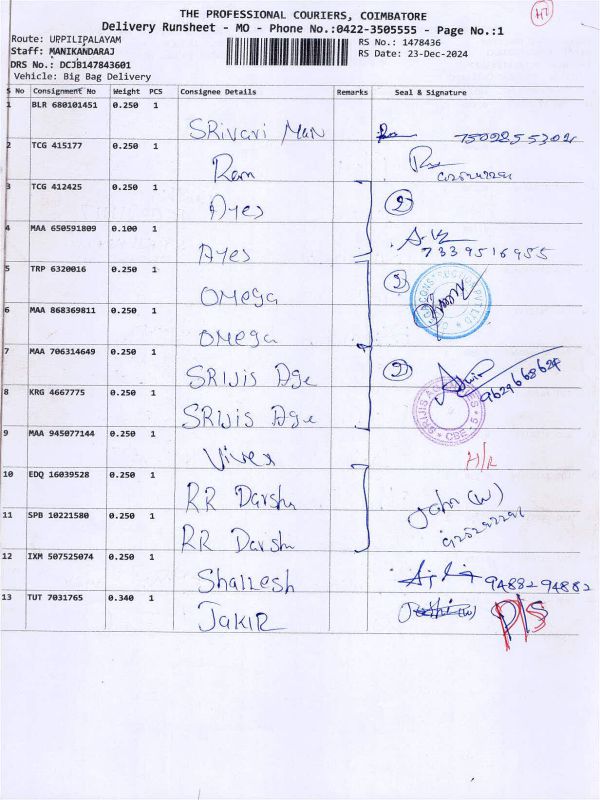 H7
THE PROFESSIONAL COURIERS, COIMBATORE
Delivery Runsheet - MO - Phone No.:0422-3505555 - Page No.:1
Route: UPPILIPALAYAM
RS No.: 1478436
Staff: MANIKANDARAJ
RS Date: 23-Dec-2024
DRS No.: DCJB147843601
Vehicle: Big Bag Delivery
S No Consignment No Weight PCS Consignee Details Remarks Seal & Signature
1 BLR 680101451 0.250 1
SRivari Man
2 TCG 415177 0.250 1
Ram
3 TCG 412425 0.250 1
Ayes
2
4 MAA 650591809 0.100 1
Ayes
7339516955
5 TRP 6320016 0.250 1
Omega
6 MAA 868369811 0.250 1
Omega
7 MAA 706314649 0.250 1
SRIJIS Age
2
8 KRG 4667775 0.250 1
SRIJIS Age
CBE - 5
9 MAA 945077144 0.250 1
Vivek
10 EDQ 16039528 0.250 1
RR Darshn
John (W)
11 SPB 10221580 0.250 1
RR Darshn
12 IXM 507525074 0.250 1
Shailesh
9488294882
13 TUT 7031765 0.340 1
JAKIR
P/S